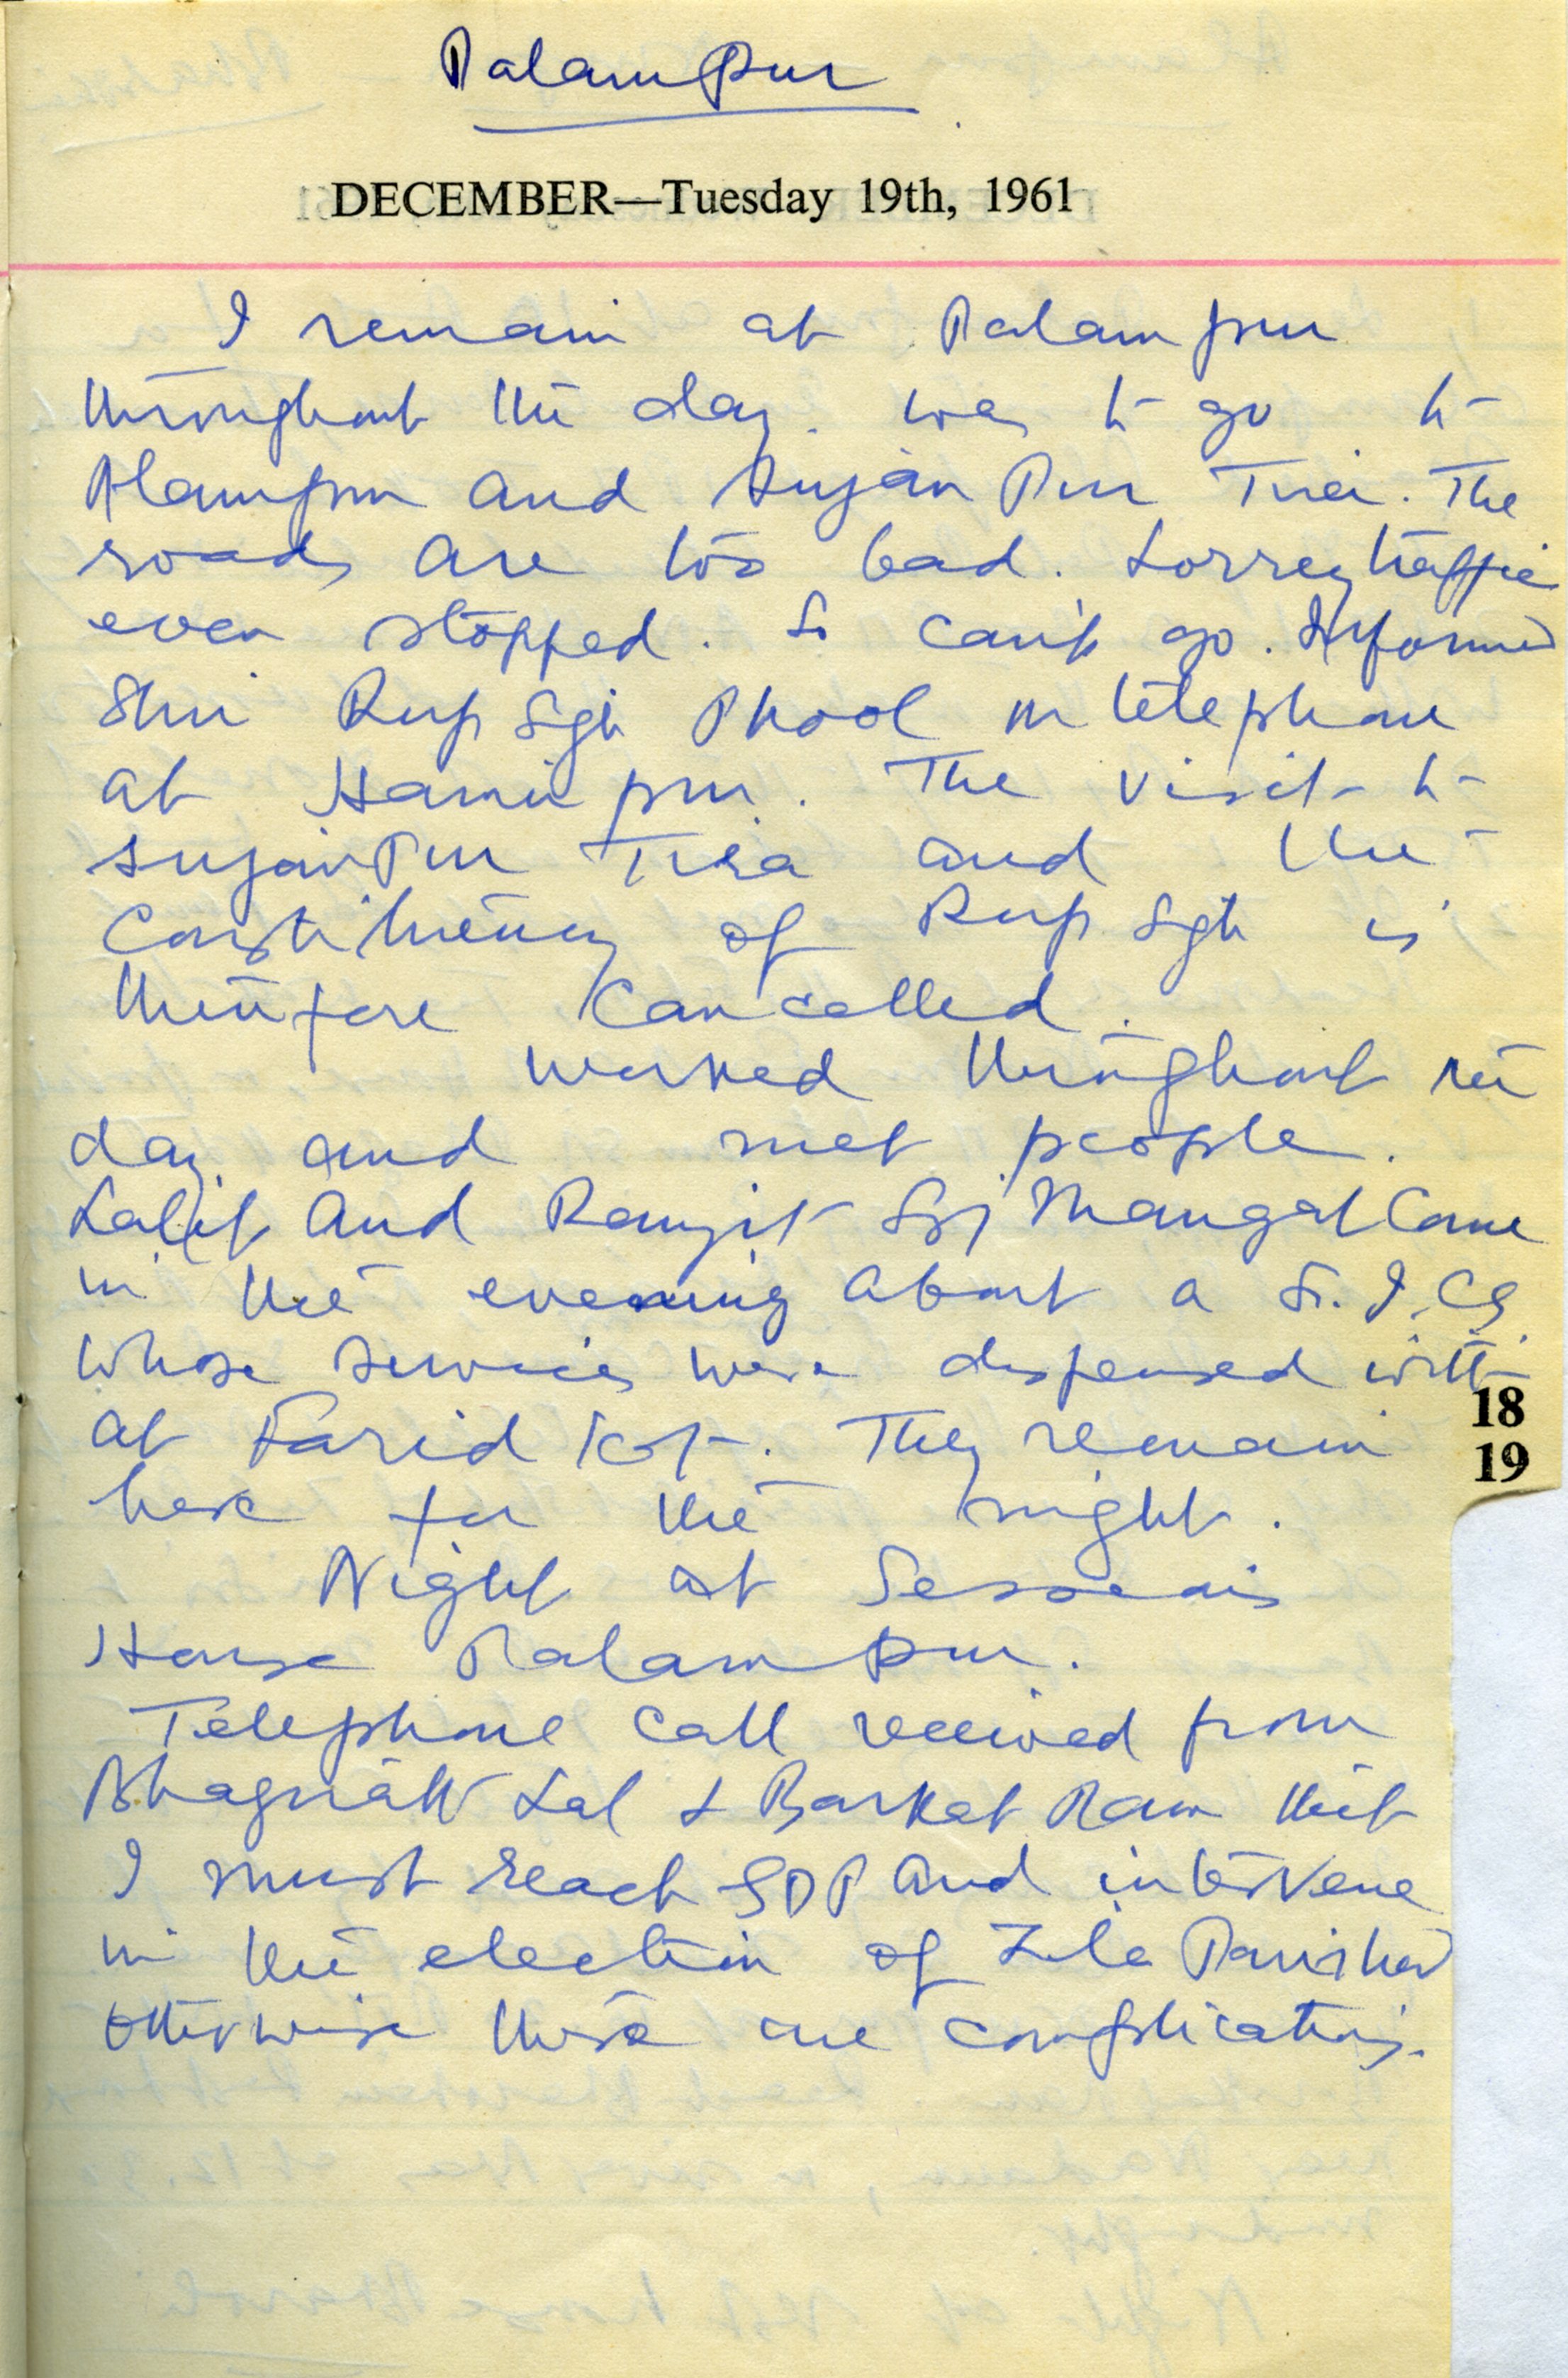 Palampur
DECEMBER—Tuesday 19th, 1961
I remain at Palampur
throughout the day. Was to go to
Alampur and Sujanpur Tira. The
roads are too bad. Lorrey traffic
even stopped. So can't go. Informed
Shri Rup Sgh Phool on telephone
at Hamirpur. The visit to
Sujanpur Tira and the
Constituency of Rup Sgh is
therefore cancelled.
Worked throughout the
day and met people.
Lalit and Ranjit S/o Mangat came
in the evening about a S.I.
whose services were dispensed with
at Faridkot. They remain
18
19
here for the night.
Night at Sessions
House Palampur.
Telephone call received from
Bhagnath Lal & Barkat Ram that
I must reach GDP and intervene
in the election of Zila Parishad
otherwise there are complications.